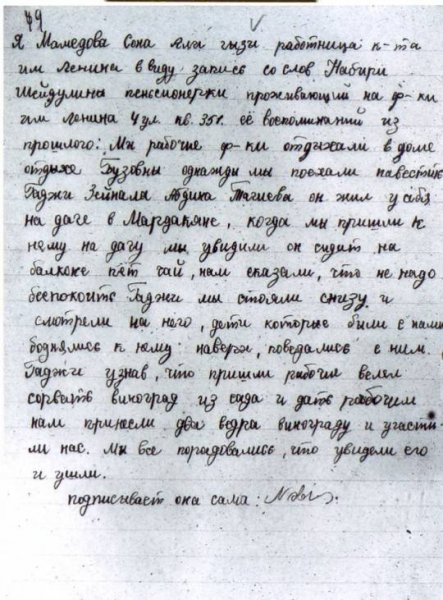 49
Я Мамедова Сона Яла гызы работница к-та
им Ленина ввиду запись со слов Набири
Шейдулины пенсионерки проживающий на ф-ки
им Ленина 4 ул. кв. 35г. её воспоминаний из
прошлого: Мы рабочие ф-ки отдыхали в доме
отдыхе Бузовны однажды мы поехали навестить
Гаджи Зейнала Абдина Тагиева он жил у себя
на даче в Мардакяне, когда мы пришли к
нему на дачу мы увидили он сидит на
балконе пёт чай, нам сказали, что не надо
беспокоить Гаджи мы стояли снизу и
смотрели на него, дети которые были с нами
подднялись к нему наверх, поведались с ним.
Гаджи узнав, что пришли рабочие велел
сорвать виноград из сада и дать рабочим
нам принесли два ведра винограду и угасти-
ли нас. Мы все порадовались, что увидели его
и ушли.
подписывает она сама: